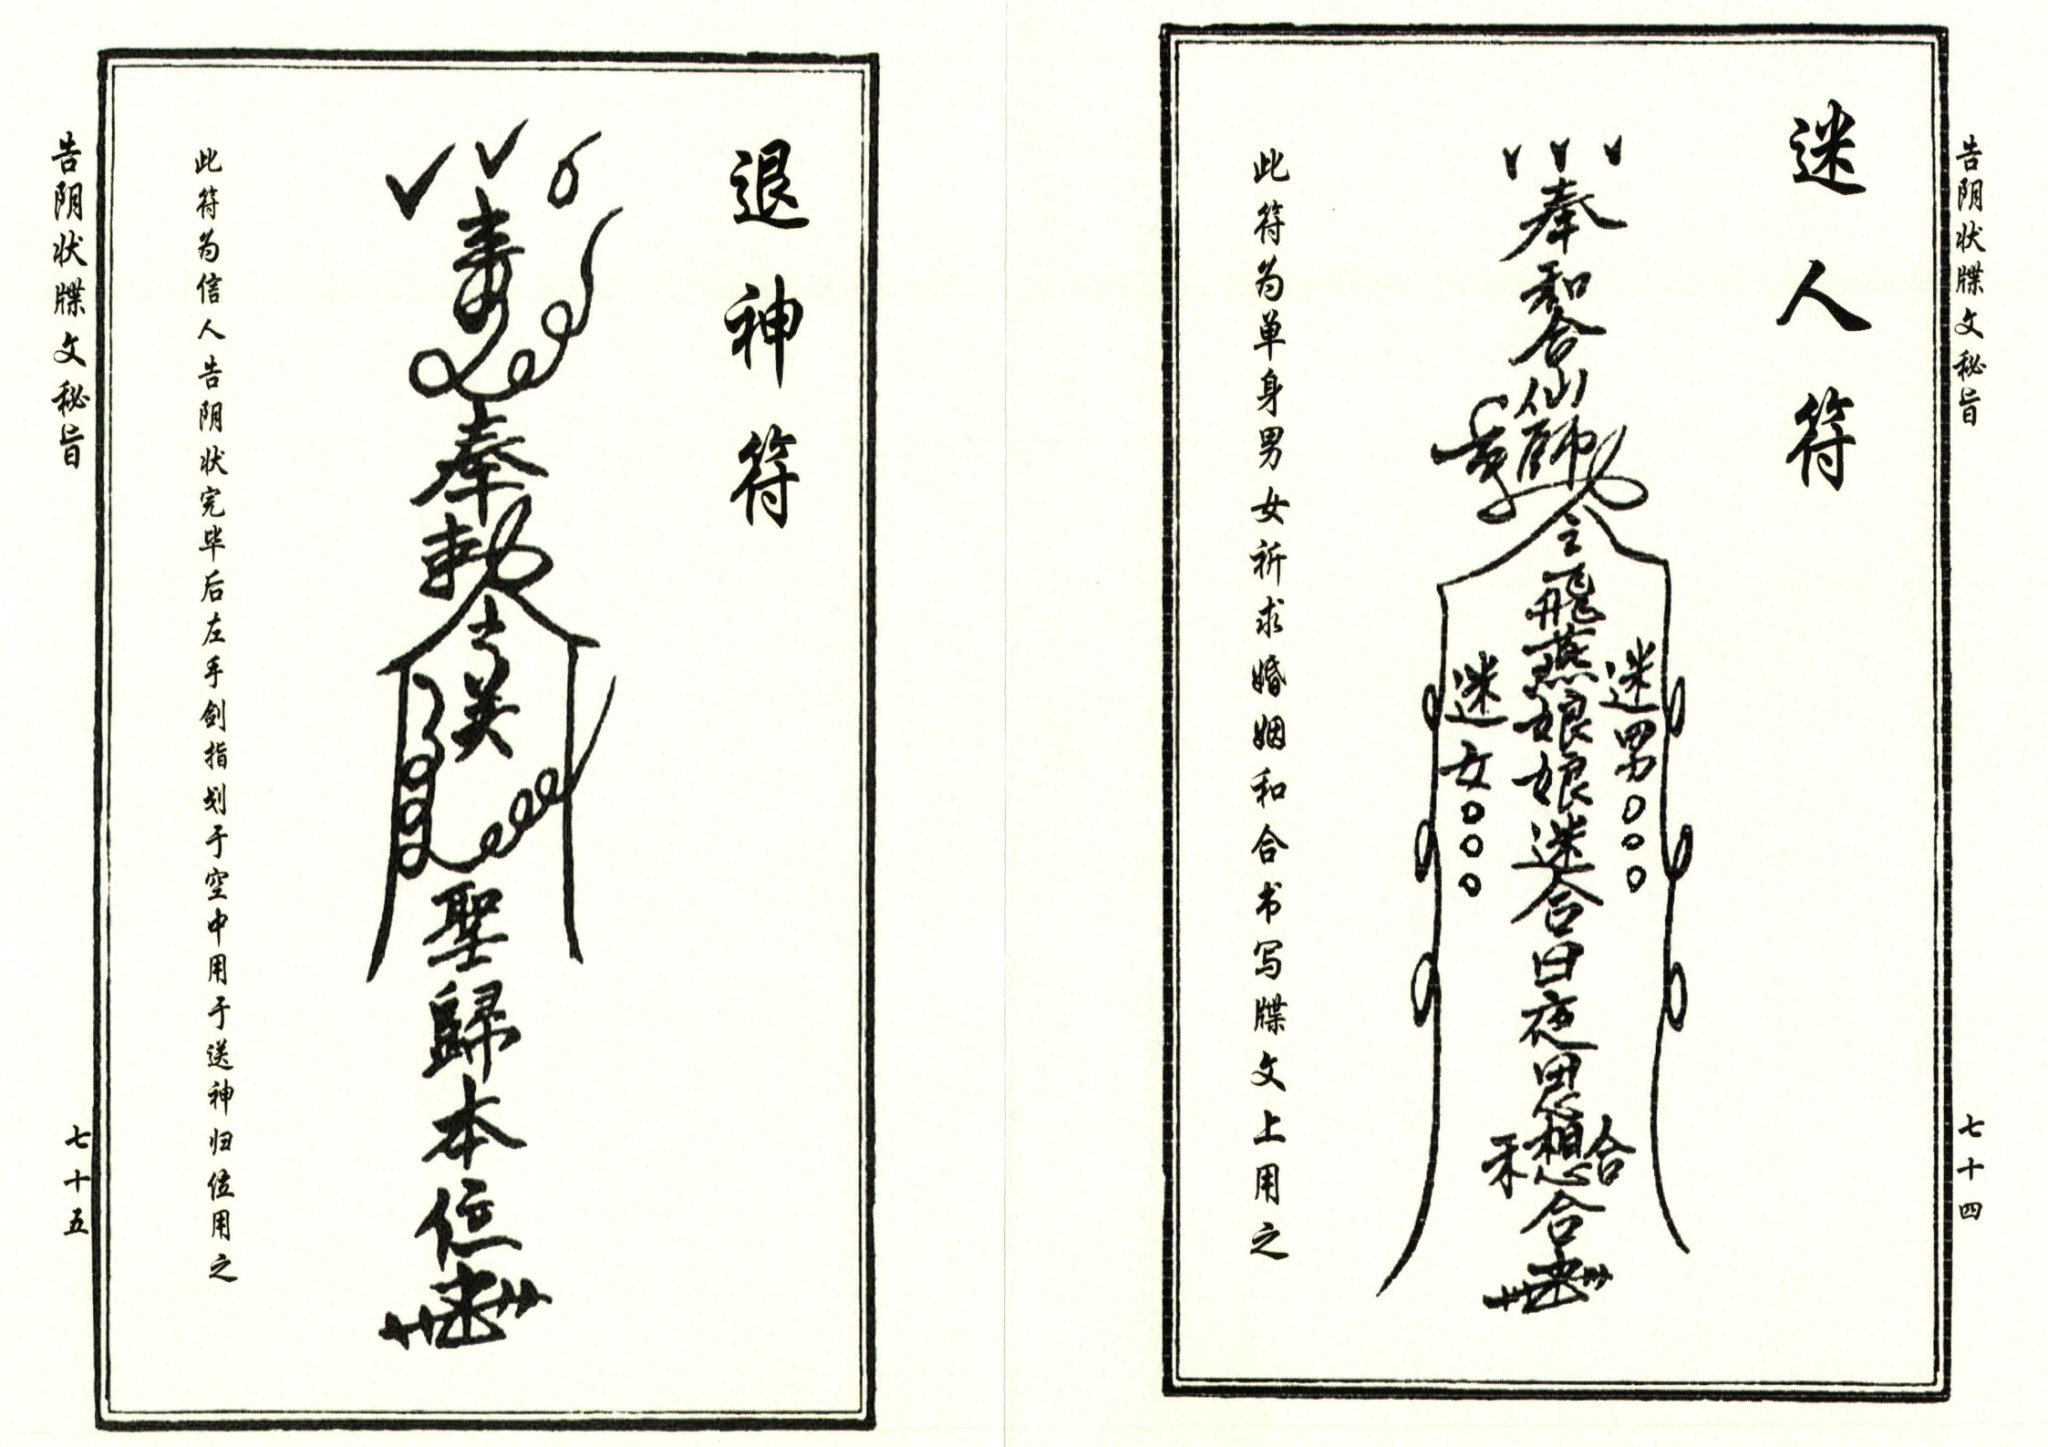 告阴状牒文秘旨
七十四
迷人符
奉和合仙師
令飛燕娘娘迷合日夜思想合
迷男○○○
迷女○○○
和合
此符为单身男女祈求婚姻和合书写牒文上用之
退神符
奉勅令
聖歸本位
此符为信人告阴状完毕后左手剑指划于空中用于送神归位用之
告阴状牒文秘旨
七十五